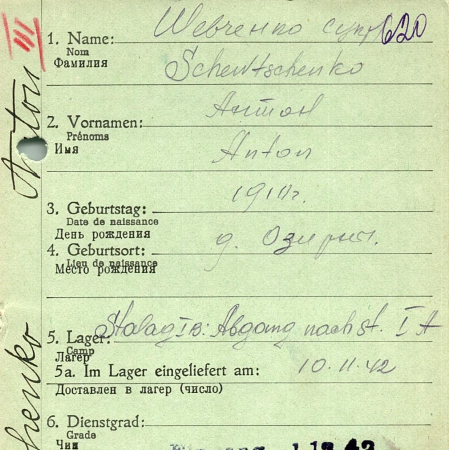 III
620
1. Name: Шевченко
Nom
Фамилия Schewtschenko
Антон
2. Vornamen:
Prénoms
Имя Anton
1911г.
3. Geburtstag:
Date de naissance
День рождения
4. Geburtsort: д.
Lieu de naissance
Место рождения
5. Lager: Stalag IB: Abgang nach St. IA
Camp
Лагерь
5a. Im Lager eingeliefert am: 10.11.42
Доставлен в лагерь (число)
6. Dienstgrad:
Grade
Чин
Anton